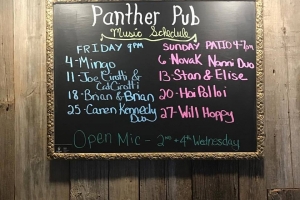 Panther Pub
Music Schedule
FRIDAY 9PM
4-Mingo
11-Joe Ciratti &
Cat Ciratti
18-Brian & Brian
25-Caren Kennedy
Duo
SUNDAY PATIO 4-7pm
6-Novak Nanni Duo
13-Stan & Elise
20-Hoi Polloi
27-Will Hoppy
Open Mic - 2nd + 4th Wednesday